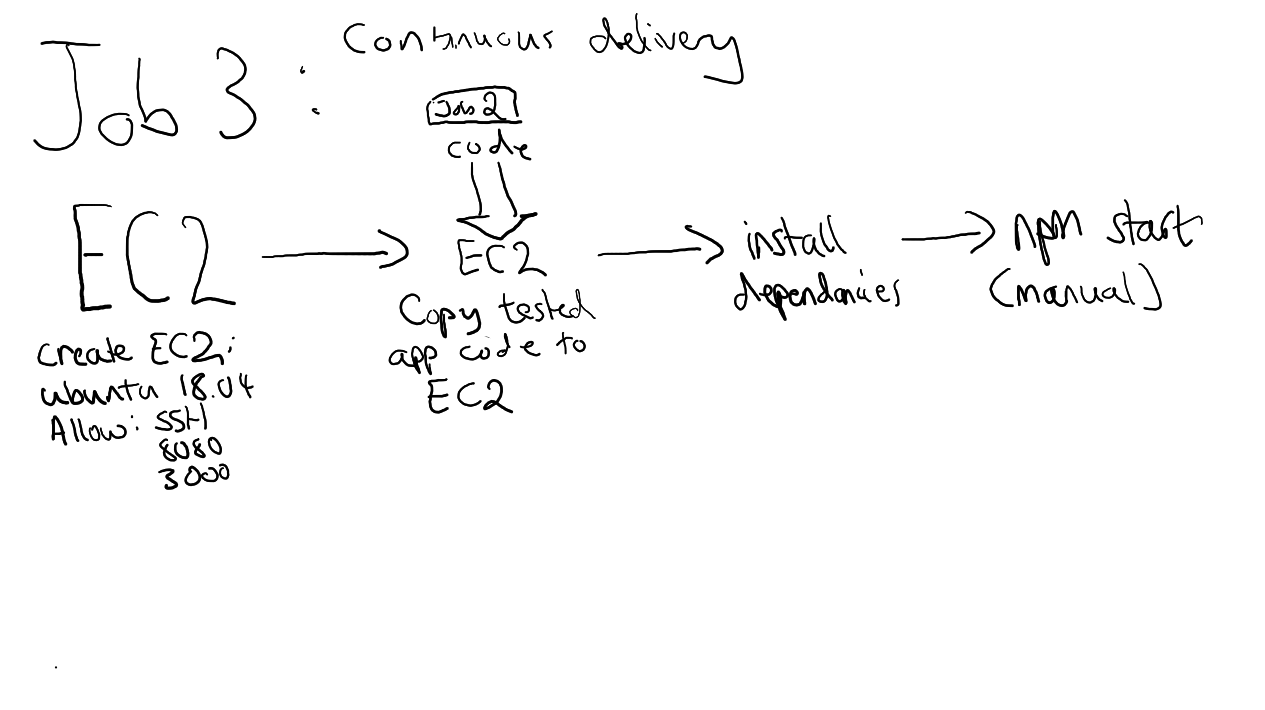 Job 3 : Continuous delivery
Job 2
code
EC2
create EC2:
ubuntu 18.04
Allow: SSH
8080
3000
EC2
Copy tested
app code to
EC2
install
dependancies
npm start
(manual)